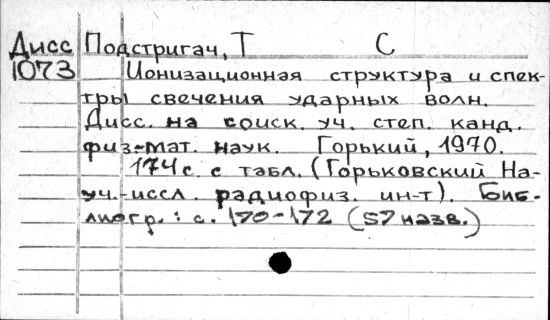 Дисс Подстригач, Т С
1073 Ионизационная структура и спек-
тры свечения ударных волн.
Дисс. на соиск. уч. степ. канд.
физ-мат. наук. Горький, 1970.
174 с. с табл. (Горьковский На-
уч.-иссл. радиофиз. ин-т). Биб-
лиогр.: с. 170-172 (57 назв.)